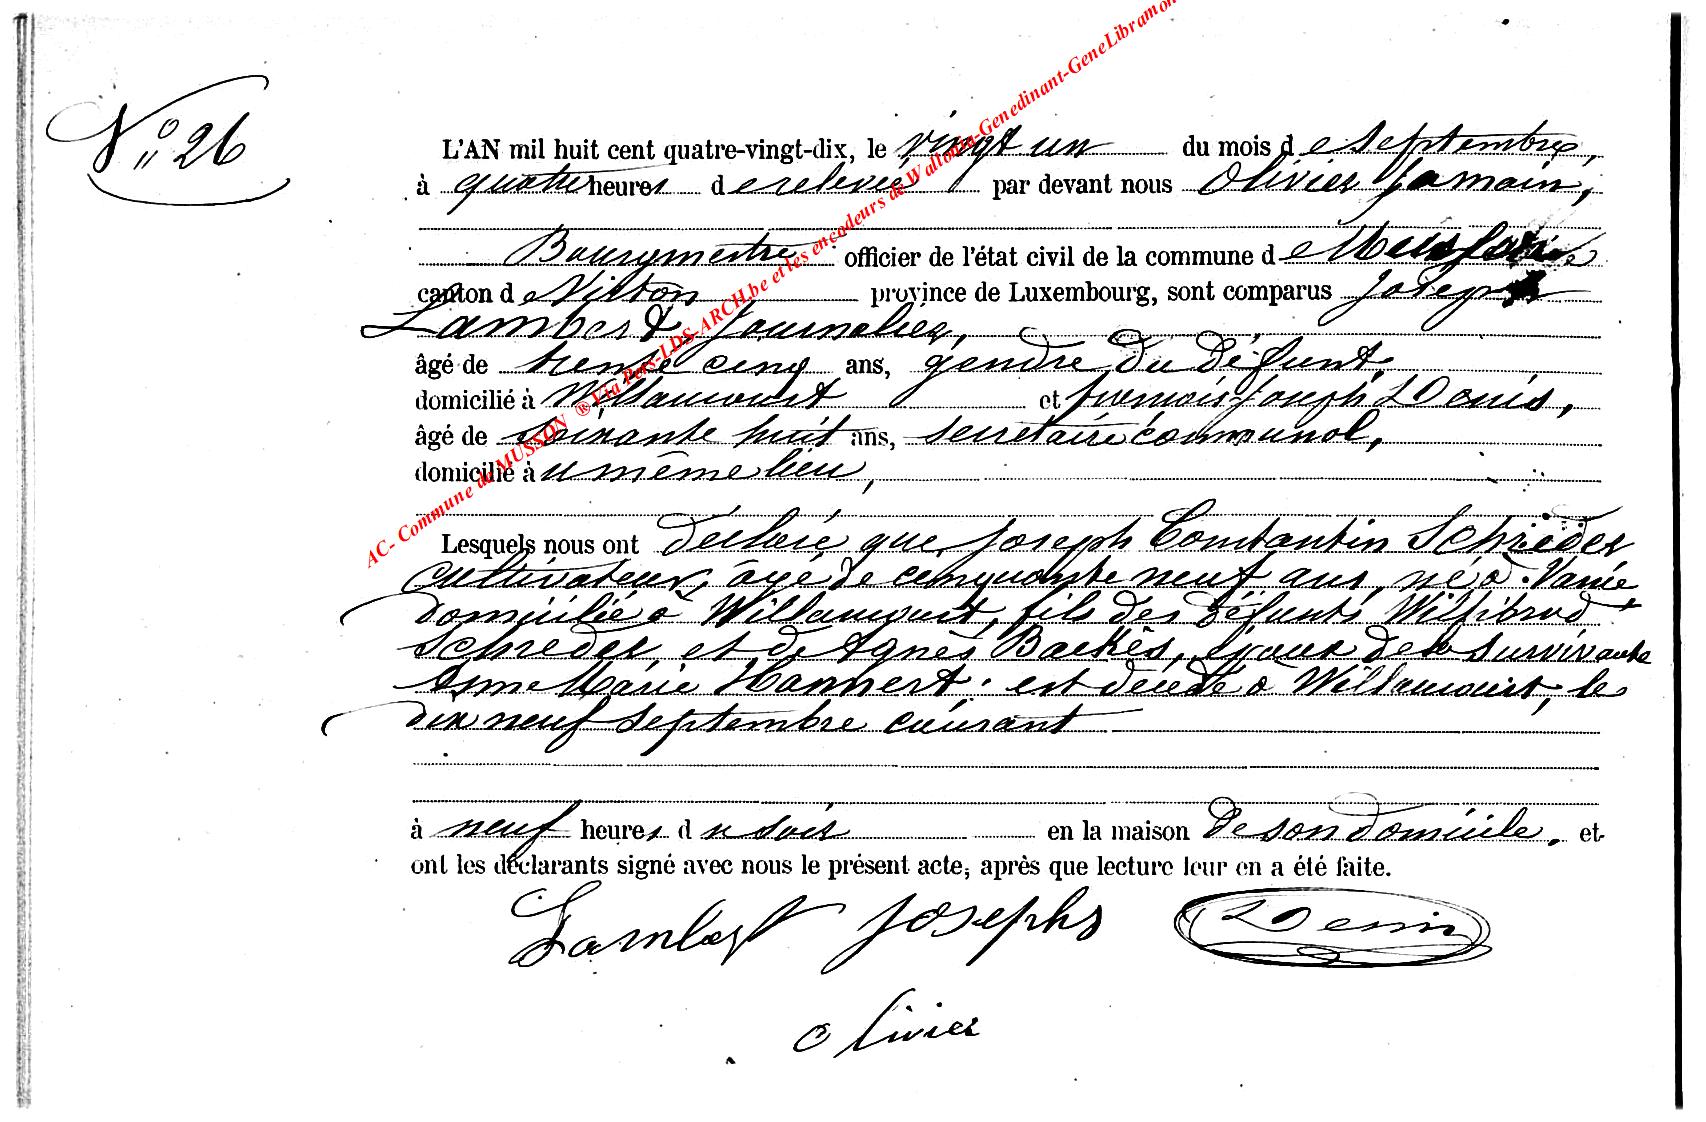 N° 26
L'AN mil huit cent quatre-vingt-dix, le vingt un du mois de septembre,
à quatre heures de relevée par devant nous Olivier Jamain,
Bourgmestre officier de l'état civil de la commune de
canton de Virton province de Luxembourg, sont comparus Joseph
Lambert, journalier,
âgé de trente cinq ans, gendre du défunt,
domicilié à Willancourt et françois joseph Denis,
âgé de soixante huit ans, secrétaire communal,
domicilié au même lieu,
Lesquels nous ont déclaré que Joseph Constantin Schrèder
cultivateur, âgé de cinquante neuf ans, né à Vance
domicilié à Willancourt, fils des défunts Willibrod
Schreder, et de Agnès Backès, époux de la survivante
Marie Hannert. est décédé à Willancourt, le
dix neuf septembre courant
à neuf heures du soir en la maison de son domicile, et
ont les déclarants signé avec nous le présent acte, après que lecture leur en a été faite.
Lambert Josephs Denis
Olivier
AC- Commune de MUSSON ® Via Pers-LDS-ARCH.be et les encodeurs de Wallonia-Genedinant-GeneLibramon